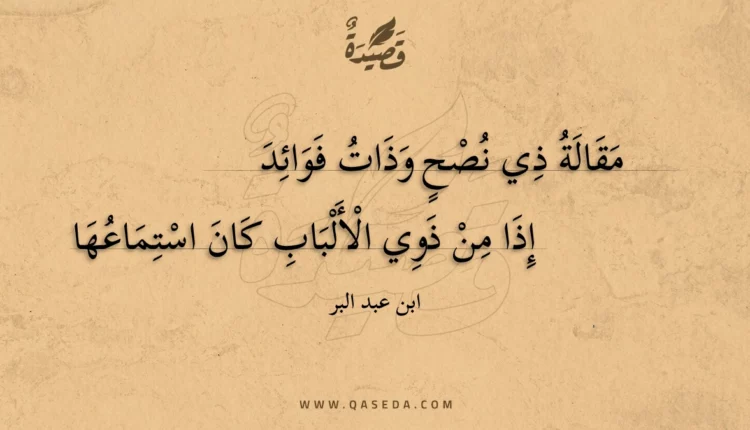 قَصِيدَةٌ
مَقَالَةُ ذِي نُصْحٍ وَذَاتُ فَوَائِدَ
إِذَا مِنْ ذَوِي الْأَلْبَابِ كَانَ اسْتِمَاعُهَا
ابن عبد البر
WWW.QASEDA.COM